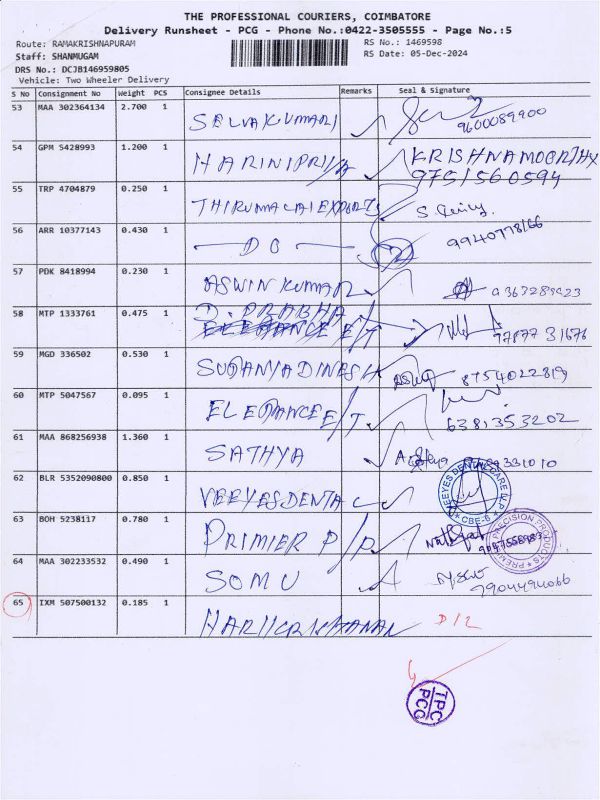 THE PROFESSIONAL COURIERS, COIMBATORE
Delivery Runsheet - PCG - Phone No.:0422-3505555 - Page No.:5
Route: RAMAKRISHNAPURAM
RS No.: 1469598
Staff: SHANMUGAM
RS Date: 05-Dec-2024
DRS No.: DCJB146959805
Vehicle: Two Wheeler Delivery
S No Consignment No Weight PCS Consignee Details Remarks Seal & Signature
53 MAA 302364134 2.700 1 SELVAKUMARI 9600089900
54 GPM 5428993 1.200 1 HARINIPRIYA KRISHNAMOORTHY
9751560594
55 TRP 4704879 0.250 1 THIRUMALAI EXPORTS
56 ARR 10377143 0.430 1 DO 9940778166
57 PDK 8418994 0.230 1 ASWIN KUMAR 9363289923
58 MTP 1333761 0.475 1 D. PRABHA 77877 31676
59 MGD 336502 0.530 1 SUGANYADINESH 8754022819
60 MTP 5047567 0.095 1 ELEGANCE E/T 6381353202
61 MAA 868256938 1.360 1 SATHYA
62 BLR 5352090800 0.850 1 VEEYES DENTAL C
VEEYES DENTAL CARE
CBE-6
63 BOH 5238117 0.780 1 PRIMIER P/P
PRECISION PRODUCTS
64 MAA 302233532 0.490 1 SOMU 7904494066
65 IXM 507500132 0.185 1 HARIKRISHANAN D/L
TPC
PCG